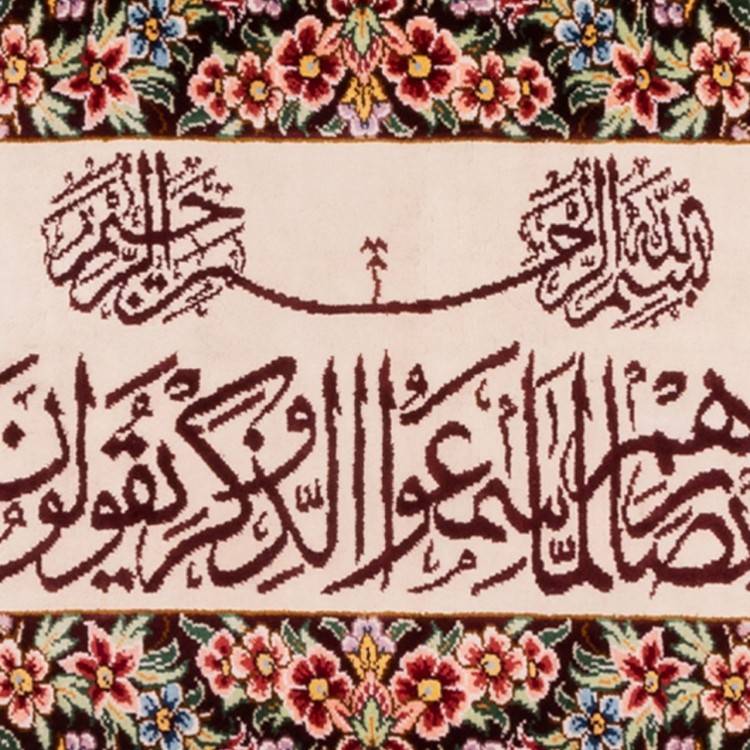 بسم الله الرحمن الرحیم
بصارهم لما سمعوا الذکر و یقولون